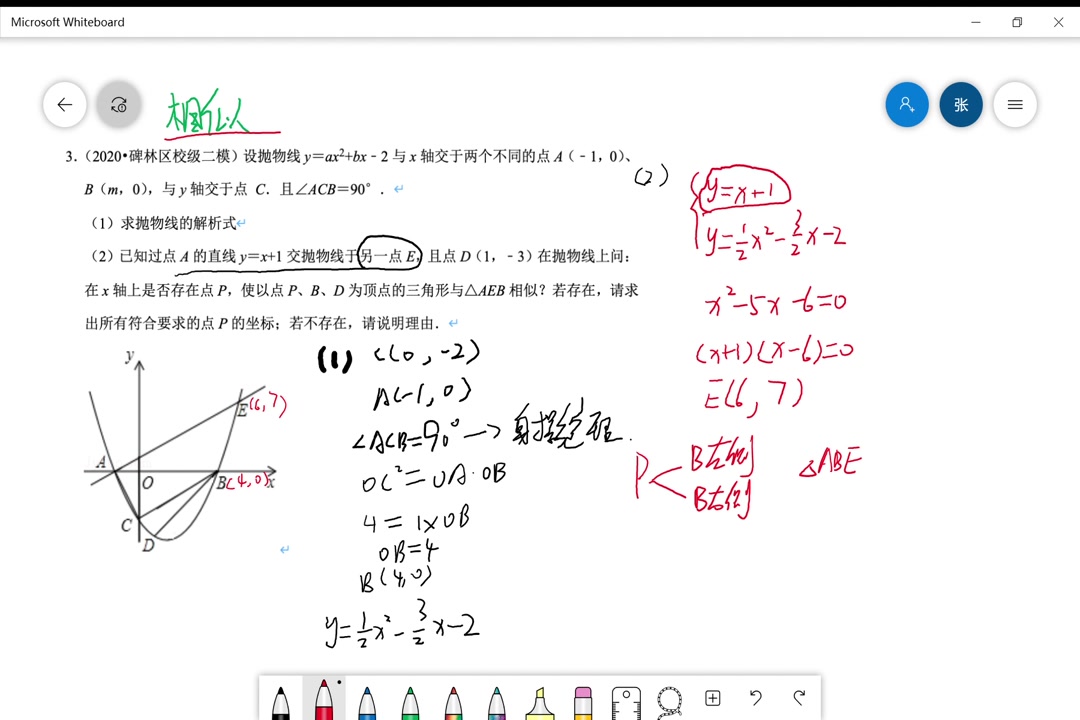 Microsoft Whiteboard
张
相似
3.（2020•碑林区校级二模）设抛物线 y＝ax²+bx﹣2 与 x 轴交于两个不同的点 A（﹣1，0）、
B（m，0），与 y 轴交于点 C．且∠ACB＝90°．
（1）求抛物线的解析式
（2）已知过点 A 的直线 y＝x+1 交抛物线于另一点 E，且点 D（1，﹣3）在抛物线上问：
在 x 轴上是否存在点 P，使以点 P、B、D 为顶点的三角形与△AEB 相似？若存在，请求
出所有符合要求的点 P 的坐标；若不存在，请说明理由．
y
E(6,7)
A
O
B(4,0)
x
C
D
(1) C(0,-2)
A(-1,0)
∠ACB=90° → 射影定理.
OC²=OA·OB
4=1×OB
OB=4
B(4,0)
y=1/2x²-3/2x-2
(2)
y=x+1
y=1/2x²-3/2x-2
x²-5x-6=0
(x+1)(x-6)=0
E(6,7)
P
B左侧
B右侧
△ABE